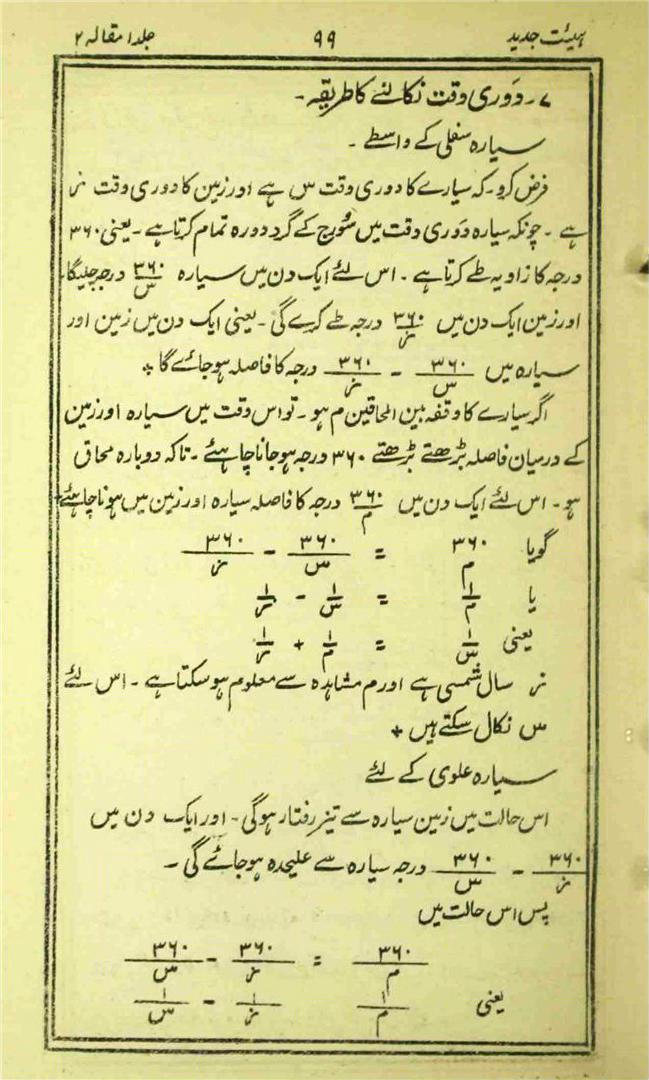 ہیئت جدید ۹۹ جلد ا مقالہ ۲
۷۔ دَوری وقت نکالنے کا طریقہ۔
سیارہ سفلی کے واسطے۔
فرض کرو۔ کہ سیارے کا دوری وقت س ہے اور زمین کا دوری وقت ز
ہے۔ چونکہ سیارہ دَوری وقت میں سُورج کے گرد دورہ تمام کرتا ہے۔ یعنی ۳۶۰
درجہ کا زاویہ طے کرتا ہے۔ اس لئے ایک دن میں سیارہ ۳۶۰/س درجہ چلیگا۔
اور زمین ایک دن میں ۳۶۰/ز درجہ طے کرے گی۔ یعنی ایک دن میں زمین اور
سیارہ میں ۳۶۰/س - ۳۶۰/ز درجہ کا فاصلہ ہو جائے گا +
اگر سیارے کا وقفہ بین المحاقین م ہو۔ تو اس وقت میں سیارہ اور زمین
کے درمیان فاصلہ بڑھتے بڑھتے ۳۶۰ درجہ ہو جانا چاہئے۔ تاکہ دوبارہ محاق
ہو۔ اس لئے ایک دن میں ۳۶۰/م درجہ کا فاصلہ سیارہ اور زمین میں ہونا چاہئے +
گویا ۳۶۰/م = ۳۶۰/س - ۳۶۰/ز
یا ۱/م = ۱/س - ۱/ز
یعنی ۱/س = ۱/م + ۱/ز
ز سال شمسی ہے اور م مشاہدہ سے معلوم ہو سکتا ہے۔ اس لئے
س نکال سکتے ہیں +
سیارہ علوی کے لئے
اس حالت میں زمین سیارہ سے تیز رفتار ہوگی۔ اور ایک دن میں
۳۶۰/ز - ۳۶۰/س درجہ سیارہ سے علیحدہ ہو جائے گی۔
پس اس حالت میں
۳۶۰/م = ۳۶۰/ز - ۳۶۰/س
یعنی ۱/م ۱/ز - ۱/س